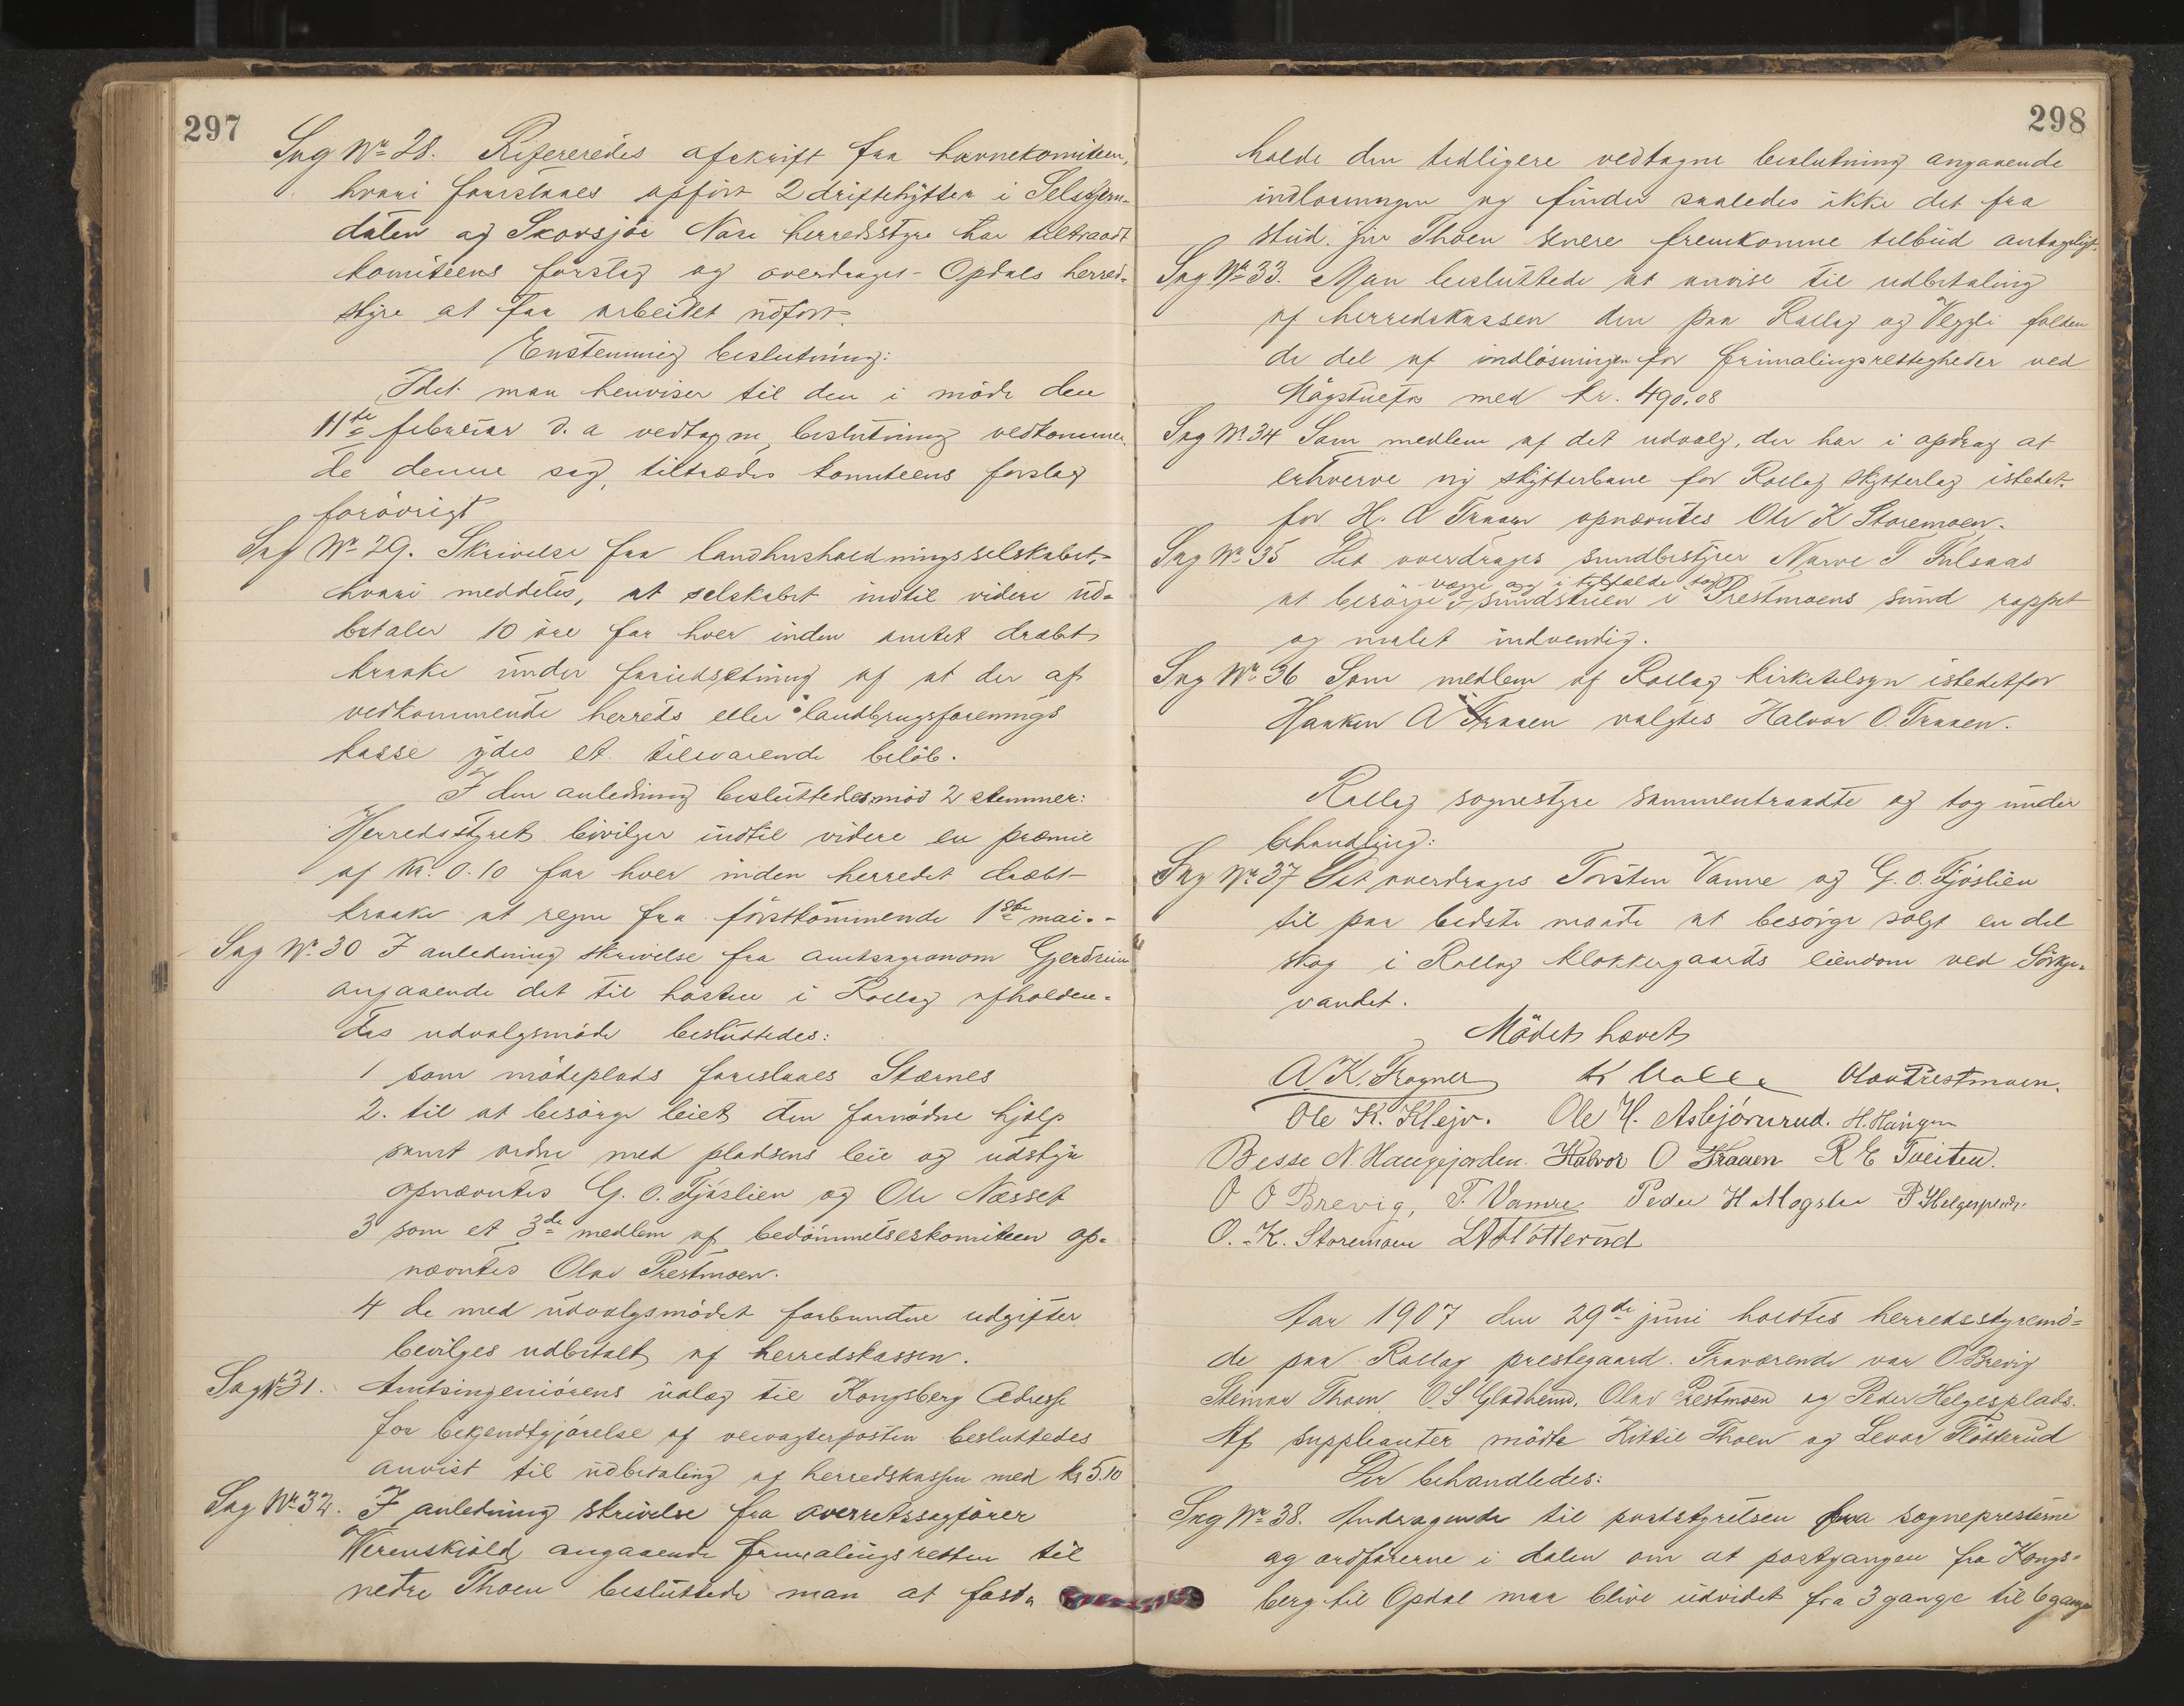 297
Sag Nr 28. Refereredes afskrift fra havnekomiteen,
hvori foreslaaes opført 2 driftehytter i
dalen og Skorsjøe Nore herredsstyre har tiltraadt
komiteens forslag og overdraget Opdals herred-
styre at faa arbeidet udført.
Enstemmig beslutning:
Idet man henviser til den i møde den
11te februar d. a vedtagne beslutning vedkommen
de denne sag, tiltrædes komiteens forslag
forøvrigt
Sag Nr 29. Skrivelse fra landhusholdningsselskabet,
hvori meddeles, at selskabet indtil videre ud-
betaler 10 øre for hver inden amtet dræbt
kraake under forudsetning af at der af
vedkommende herreds eller landbrugsforenings
kasse ydes et tilsvarende beløb.
I den anledning besluttedes mod 2 stemmer:
Herredsstyret bevilger indtil videre en præmie
af Kr. 0.10 for hver inden herredet dræbt
kraake at regne fra førstkommende 1ste mai.-
Sag Nr 30 I anledning skrivelse fra amtsagronom Gjerdrum
angaaende det til høsten i Rollag afholden-
des udvalgsmøde besluttedes:
1 som mødeplads foreslaaes Stærnes
2. til at besørge leiet den fornødne hjælp
samt ordne med pladsens leie og udstyr
opnævntes G. O. Fjøslien og Ole Næsset
3 som et 3de medlem af bedømmelseskomiteen op-
nævntes Olav Prestmoen.
4 de med udvalgsmødet forbundne udgifter
bevilges udbetalt af herredskassen.
Sag Nr 31. Amtsingeniørens udlæg til Kongsberg Adresse
for bekjendtgjørelse af veivogterposten besluttedes
anvist til udbetaling af herredskassen med kr 5.10
Sag Nr 32. I anledning skrivelse fra overretssagfører
Werenskiold angaaende frimalingsretten til
nedre Thoen besluttede man at fast-
298
holde den tidligere vedtagne beslutning angaaende
indløsningen og finder saaledes ikke det fra
stud. jur Thoen senere fremkomne tilbud antageligt.
Sag Nr 33. Man besluttede at anvise til udbetaling
af herredskassen den paa Rollag og Veggli falden
de del af indløsningen for frimalingsrettigheder ved
Mogstuefos med kr. 490.08
Sag Nr 34 Som medlem af det udvalg, der har i opdrag at
erhverve ny skytterbane for Rollag skytterlag istedet-
for H. A Traaen opnævntes Ole K Storemoen.
Sag Nr 35 Det overdrages sundbestyrer Narve T Fulsaas
og i tilfælde tag
at besørge sundstuen i Prestmoens sund pappet
og malet indvendig.
Sag Nr 36 Som medlem af Rollag kirketilsyn istedetfor
Haaken A Traaen valgtes Halvor O. Traaen.
Rollag sognestyre sammentraadte og tog under
behandling:
Sag Nr 37 Det overdrages Torsten Vamre og G. O. Fjøslien
til paa bedste maade at besørge solgt en del
skog i Rollag klokkergaards eiendom ved Sørkje-
vandet.
Mødet hævet
A K. Fragner K Kolle Olav Prestmoen.
Ole K. Kleiv. Ole H. Asbjørnrud. H. Haugen
Besse N. Haugejorden. Halvor O Traaen R E Tveiten.
O O Brevig, T. Vamre Peder H Mogstu P Helgesplads.
O. K. Storemoen L Flötterud
Aar 1907 den 29de juni holdtes herredsstyremø-
de paa Rollag prestegaard. Fraværende var O Brevig
Steinar Thoen, O. S. Gladheim, Olav Prestmoen og Peder Helgesplads.
Af suppleanter mødte Kittil Thoen og Levor Fløtterud
Der behandledes:
Sag Nr 38. Andragende til poststyrelsen fra sogneprestene
og ordførerne i dalen om at postgangen fra Kongs-
berg til Opdal maa blive udvidet fra 3 gange til 6 gange